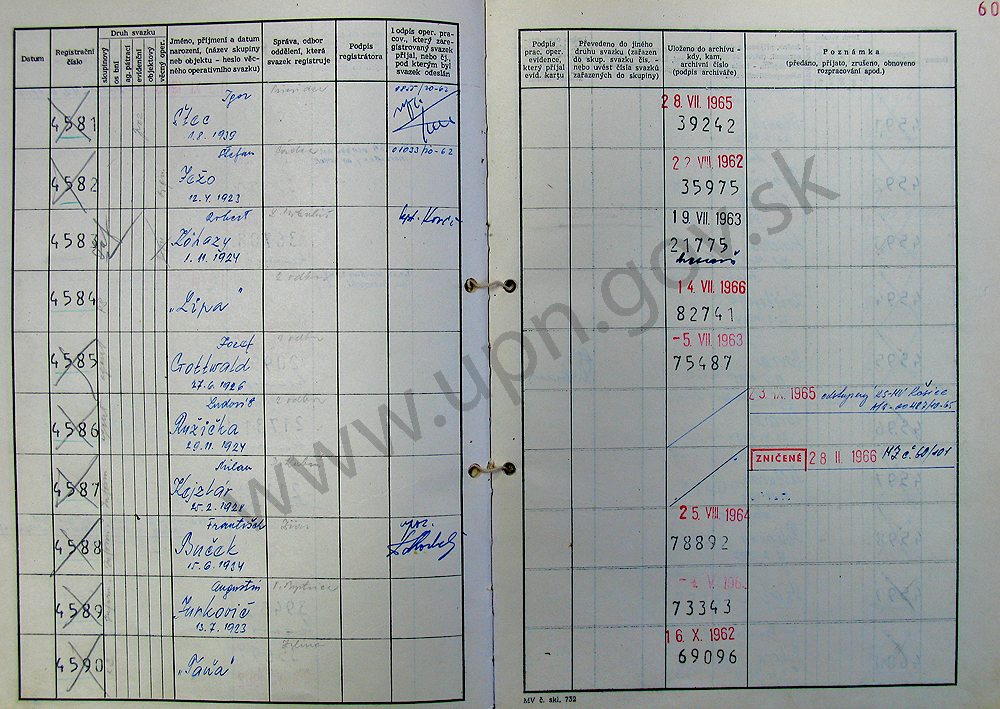 60
Datum
Registrační číslo
Druh svazku
skupinový
osobní
ag. pátrací
evidenční
objektový
věcný oper.
Jméno, příjmení a datum
narození, (název skupiny
neb objektu - heslo věc-
ného operativního svazku)
Správa, odbor
oddělení, která
svazek registruje
Podpis
registrátora
Podpis oper. pracov., který zaregistrovaný svazek
přijal, nebo čj.,
pod kterým byl
svazek odeslán
Podpis
prac. oper.
evidence,
který přijal
evid. kartu
Převedeno do jiného
druhu svazku (zařazen
do skup. svazku čís. -
nebo uvést čísla svazků
zařazených do skupiny)
Uloženo do archivu -
kdy, kam,
archivní číslo
(podpis archiváře)
Poznámka
(předáno, přijato, zrušeno, obnoveno
rozpracování apod.)
4581
Igor
1.8.1939
28. VII. 1965
39242
4582
Štefan
Ježo
12.4.1923
01033/20-62
22. VIII. 1962
35975
4583
1.11.1924
19. VII. 1963
21775
4584
„Lipa"
2 odbor
14. VII. 1966
82741
4585
Jozef
Gottwald
27.6.1926
2 odbor
-5. VII. 1963
75487
4586
Ludovít
Ružička
29.11.1924
2 odbor
23. IX. 1965 odstupený KS-MV Košice
4587
Milan
ZNIČENÉ
28 II. 1966
4588
František
Buček
15.6.1924
25. VIII. 1964
78892
4589
Augustín
Jurkovič
13.7.1923
B. Bystrica
73343
4590
„Táňa"
Žilina
16. X. 1962
69096
MV č. skl. 732
www.upn.gov.sk